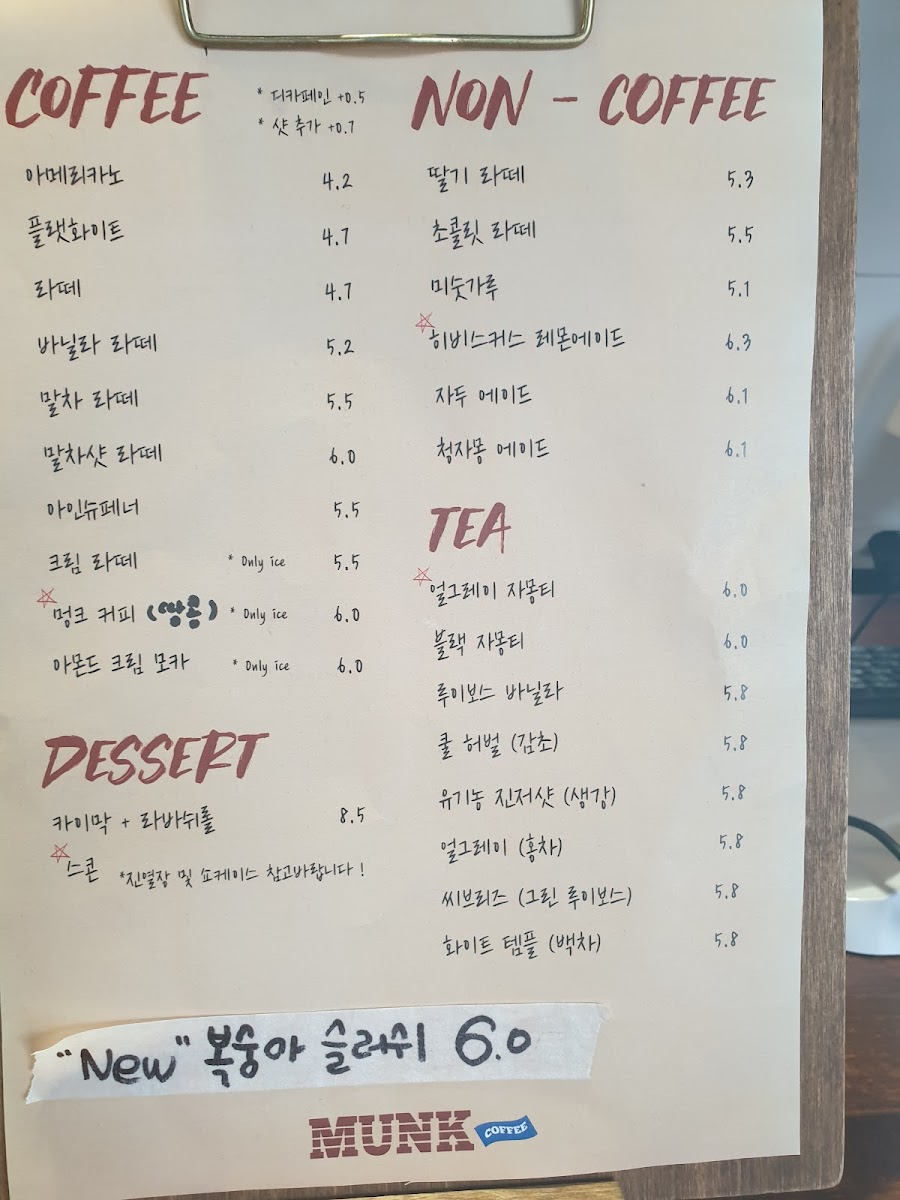 COFFEE
* 디카페인 +0.5
* 샷 추가 +0.7
아메리카노 4.2
플랫화이트 4.7
라떼 4.7
바닐라 라떼 5.2
말차 라떼 5.5
말차샷 라떼 6.0
아인슈페너 5.5
크림 라떼 * Only ice 5.5
멍크 커피 (땅콩) * Only ice 6.0
아몬드 크림 모카 * Only ice 6.0
DESSERT
카이막 + 라바쉬롤 8.5
스콘 *진열장 및 쇼케이스 참고바랍니다!
NON - COFFEE
딸기 라떼 5.3
초콜릿 라떼 5.5
미숫가루 5.1
히비스커스 레몬에이드 6.3
자두 에이드 6.1
청자몽 에이드 6.1
TEA
얼그레이 자몽티 6.0
블랙 자몽티 6.0
루이보스 바닐라 5.8
쿨 허벌 (감초) 5.8
유기농 진저샷 (생강) 5.8
얼그레이 (홍차) 5.8
씨브리즈 (그린 루이보스) 5.8
화이트 템플 (백차) 5.8
"New" 복숭아 슬러쉬 6.0
MUNK COFFEE